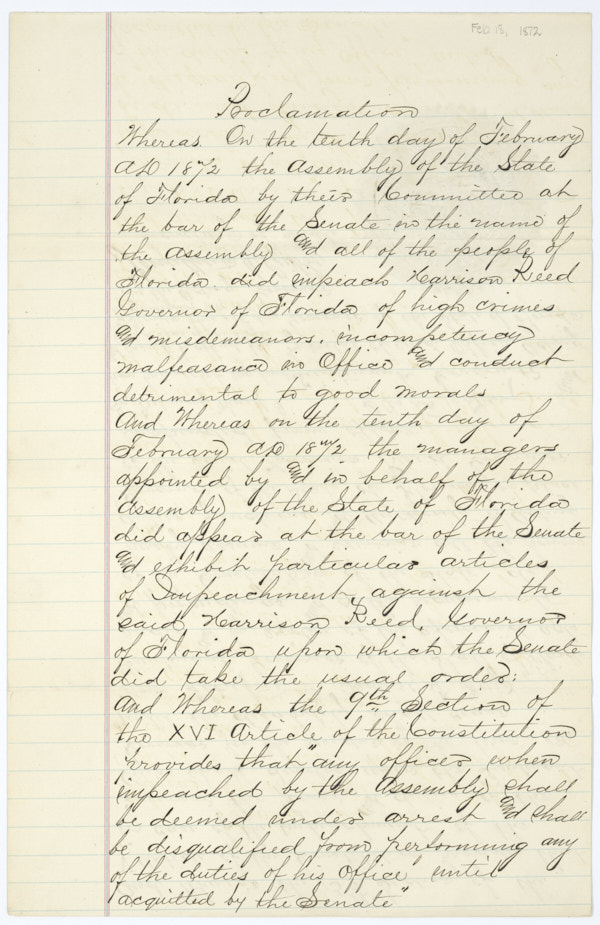 Feb 13, 1872
Proclamation
Whereas. On the tenth day of February
AD 1872 the Assembly of the State
of Florida by their Committee at
the bar of the Senate in the name of
the Assembly and all of the people of
Florida. did impeach Harrison Reed
Governor of Florida of high crimes
and misdemeanors, incompetency
malfeasance in Office and conduct
detrimental to good morals
And Whereas on the tenth day of
February AD 1872 the managers
appointed by and in behalf of the
Assembly of the State of Florida
did appear at the bar of the Senate
and exhibit particular articles
of Impeachment against the
said Harrison Reed, Governor
of Florida upon which the Senate
did take the usual order:
And Whereas the 9th Section of
the XVI Article of the Constitution
provides that "any officer when
impeached by the Assembly shall
be deemed under arrest and shall
be disqualified from performing any
of the duties of his office until
acquitted by the Senate"